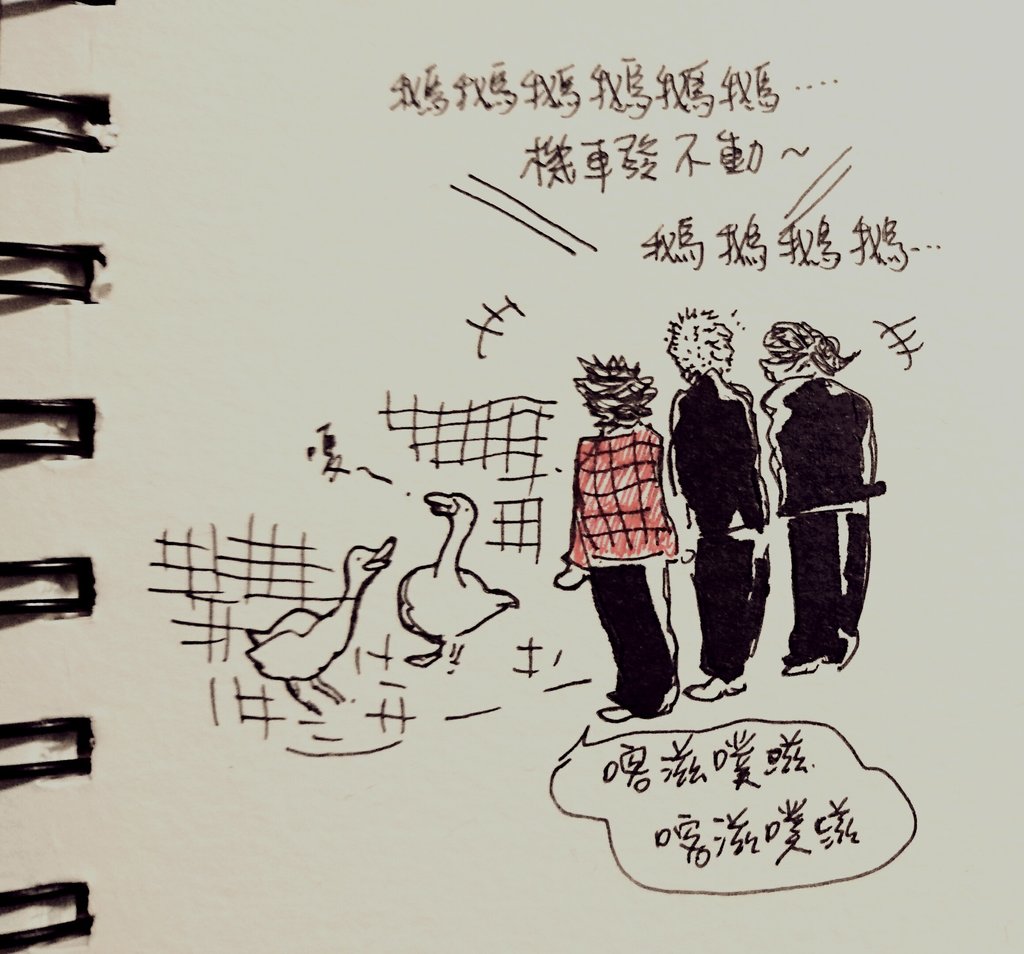 鵝鵝鵝鵝鵝鵝……
機車發不動~
鵝鵝鵝鵝…
嗄~
喀滋噗滋
喀滋噗滋